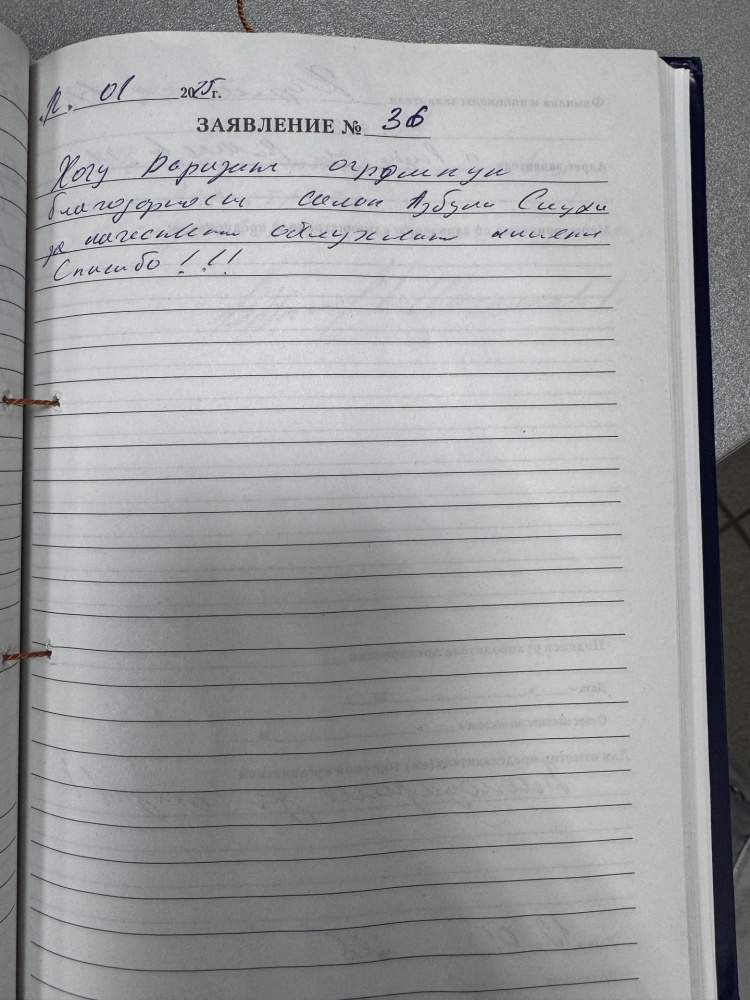 01 2025г.
ЗАЯВЛЕНИЕ № 36
Хочу выразить огромную
благодарность салон Азбука Слуха
за качественн обслуживан клиента
Спасибо !!!